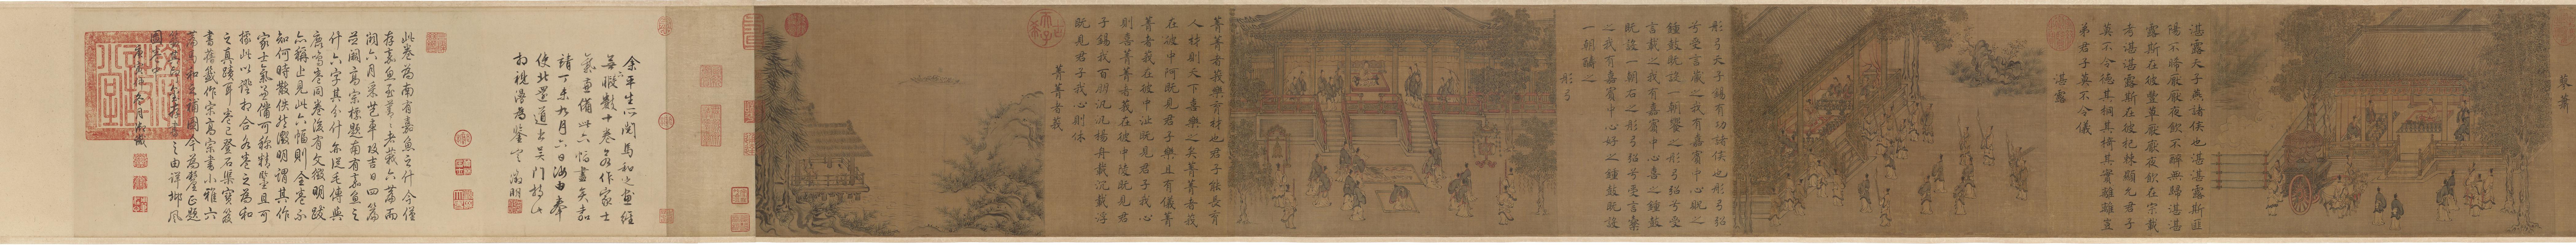 蓼蕭
湛露天子燕諸侯也湛湛露斯匪
陽不晞厭厭夜飲不醉無歸湛湛
露斯在彼豐草厭厭夜飲在宗載
考湛湛露斯在彼杞棘顯允君子
莫不令德其桐其椅其實離離豈
弟君子莫不令儀
湛露
彤弓天子錫有功諸侯也彤弓弨
兮受言藏之我有嘉賓中心貺之
鍾鼓既設一朝饗之彤弓弨兮受
言載之我有嘉賓中心喜之鍾鼓
既設一朝右之彤弓弨兮受言櫜
之我有嘉賓中心好之鍾鼓既設
一朝醻之
彤弓
菁菁者莪樂育材也君子能長育
人材則天下喜樂之矣菁菁者莪
在彼中阿既見君子樂且有儀菁
菁者莪在彼中沚既見君子我心
則喜菁菁者莪在彼中陵既見君
子錫我百朋汎汎楊舟載沉載浮
既見君子我心則休
菁菁者莪
余平生所閱馬和之畫經
數十卷多作家士
氣兼備此六幅盡矣嘉
靖丁亥九月六日由奉
使北還道出吳門持以
相視漫為鑒定 徵明
此卷為南有嘉魚之什今僅
存嘉魚至菁菁者莪六篇而
闕六月采芑車攻吉日四篇
並闕高宗標題南有嘉魚之
什六字其分什亦從毛傳與
鹿鳴卷同卷後有文徵明跋
亦稱止見此六幅則全卷不
知何時散佚然徵明謂其作
家士氣兼備可稱精鑒且可
據此以證相合各卷之為和
之真蹟耳卷已登石渠寶笈
書舊籤作宋高宗書小雅六
篇馬和之補圖今為釐正題
之由詳邶風
圖卷中
御識